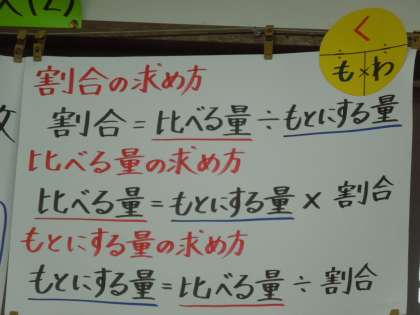 く
も×わ
割合の求め方
割合=比べる量÷もとにする量
比べる量の求め方
比べる量=もとにする量×割合
もとにする量の求め方
もとにする量=比べる量÷割合